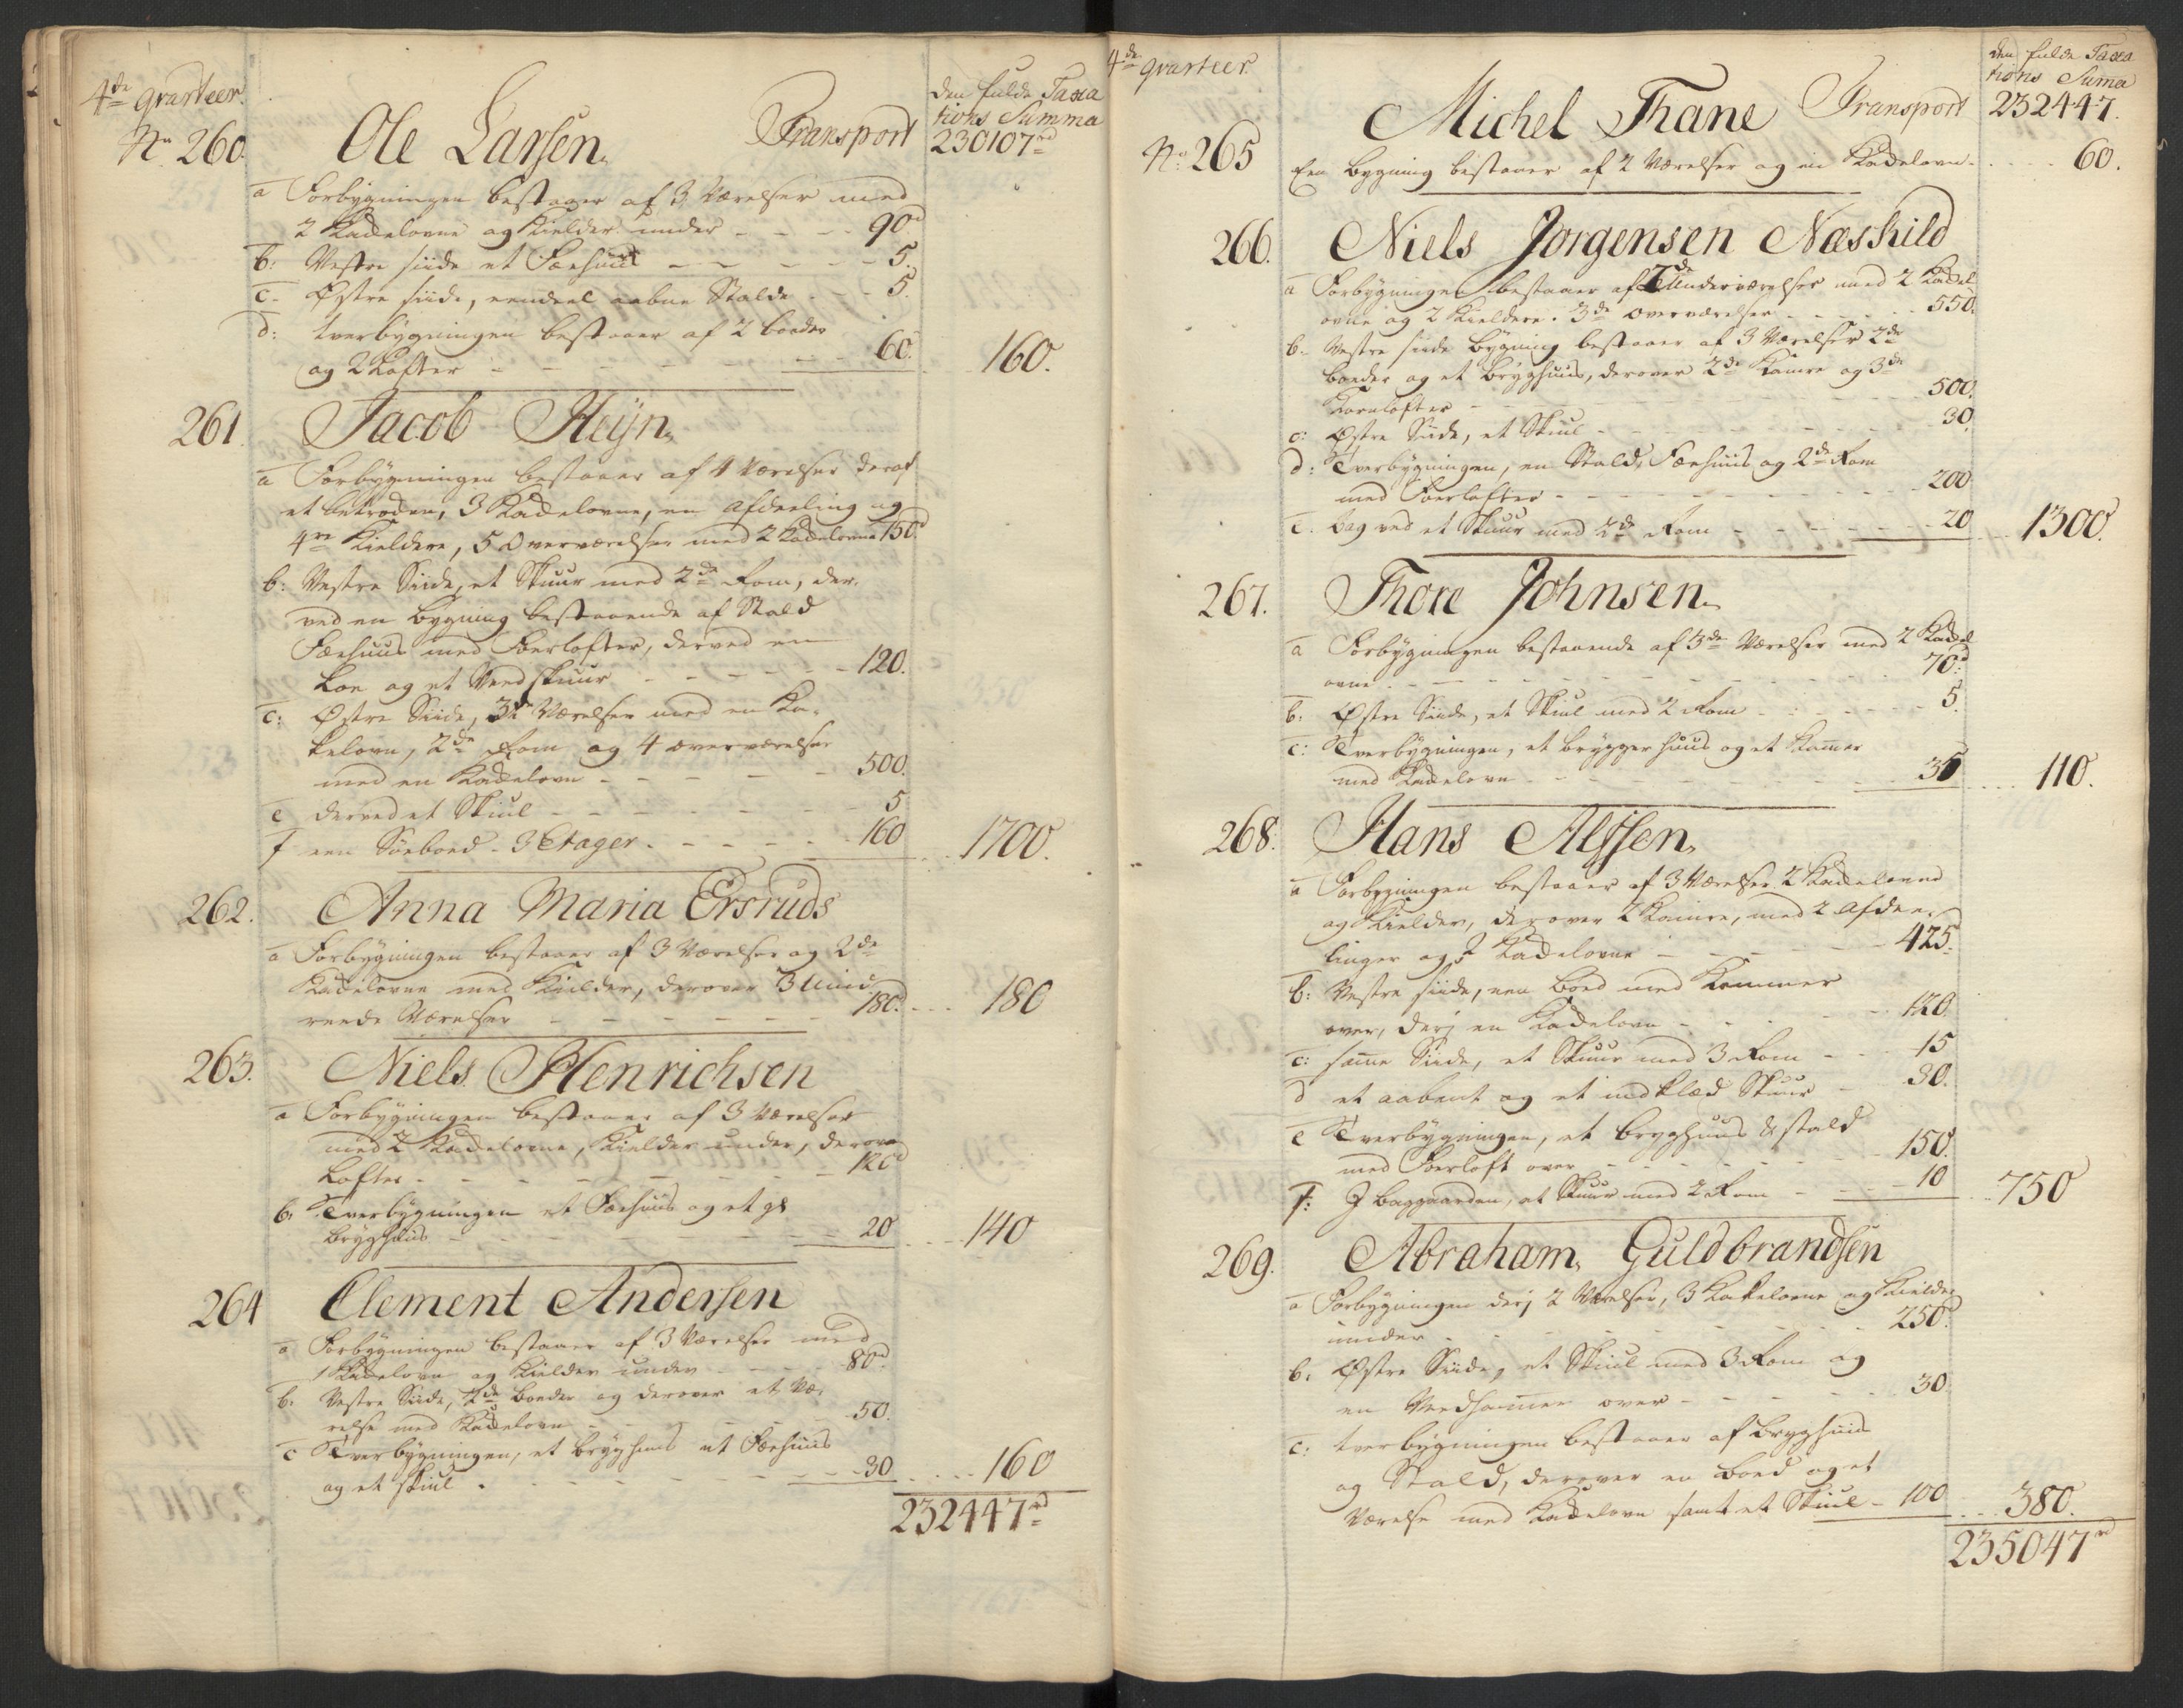 4de Qvarteer.
den fulde Taxa
tions Summa
No 260. Ole Larsen. Transport 230107rd
a Forbygningen bestaaer af 3 Værelser med
2 Kackelovne og Kielder under - - - 90d
b: Vestre siide et Fæehuus - - - 5.
c. Østre siide, eendeel aabne Stalde - - 5.
d: tverbygningen bestaaer af 2 boeder
og 2 Lofter - - - 60. 160.
261. Jacob Heijn.
a Forbygningen bestaaer af 4 Værelser deraf
et betroden, 3 Kackelovne, en afdeeling og
4re Kieldere, 5 Overværelser med 2 Kackelovne 150.
b: Vestre Siide, et Skuur med 2de Rom, der-
ved en bygning bestaaende af Stald
Fæehuus med Foerlofter, derved en
Loe og et Veedskuur - - - 120.
c: Østre Siide, 3de Værelser med en Ka-
kelovn, 2de Rom og 4 overværelser
med en Kackelovn - - - 500.
e derved et Skiul - - - 5
f een Søeboed - 3 Etager - - - 160 1700.
262. Anna Maria Ersruds
a Forbygningen bestaaer af 3 Værelser og 2de
Kackelovne med Kielder, derover 3
reede Værelser - - - 180. 180
263. Niels Henrichsen
a Forbygningen bestaaer af 3 Værelser
med 2 Kackelovne, Kielder under, derover
Lofter - - - 120d
b. Tverbygningen et Fæehuus og et gl
bryghuus - - - 20 140
264 Clement Andersen
a Forbygningen bestaaer af 3 Værelser med
1 Kackelovn og Kielder under - - - 80d
b. Vestre Siide, 2de boeder og derover et Væ-
relse med Kackelovn - - - 50.
c Tverbygningen, et bryghuus et Fæehuus
og et skiul - - - 30 160
232447rd
4de qvarteer.
den fulde Taxa
tions Suma
Michel Thane Transport 232447.
No: 265 Een bygning bestaaer af 2 Værelser og en Kackelovn. 60.
266. Niels Jorgensen Næskild
a Forbygningen bestaaer af 7de Underværelser med 2 Kackel
ovne og 2 Kieldere. 3de overværelser - - - 550.
b. Vestre siide bygning bestaaer af 3 Værelser 2de
boeder og et bryghuus, derover 2de Kamre og 3de
Kornlofter - - - 500.
c: Østre Siide, et Skiul - - - 30.
d: Tverbygningen, en Stald, Fæehuus og 2de Rom
med Foerlofter - - - 200
e. bag ved et Skuur med 2de Rom - - - 20 1300.
267. Thore Johnsen.
a Forbygningen bestaaende af 3de Værelser med 2 Kackel
ovne - - - 70d
b. Østre Siide, et Skiul med 2 Rom - - - 5.
c: Tverbygningen, et brygger huus og et Kamer
med Kackelovn - - - 35 110.
268. Hans Alssen.
a Forbygningen bestaaer af 3 Værelser 2 Kackelovne
og Kielder, derover 2 Kamre, med 2 afdee-
linger og 2 Kackelovne - - - 425.
b: Vestre siide, een boed med Kammer
over, derj en Kackelovn - - - 120.
c: same Siide, et Skuur med 3 Rom - - - 15
d et aabent og et indklæd Skuur - 30.
e Tverbygningen, et bryghuus & stald
med Foerloft over - - - 150.
f: J baggaarden, et Skuur med 2 Rom - - - 10 750
269. Abraham Guldbrandsen
a Forbygningen derj 2 Værelser, 3 Kakelovne og Kielder
under - - - 250d
b. Østre Siide, et Skiul med 3 Rom og
en over - - - 30.
c: tverbygningen bestaaer af bryghuus
og Stald, derover en boed og et
Værelse med Kackelovn samt et Skiul - 100 380.
235047rd